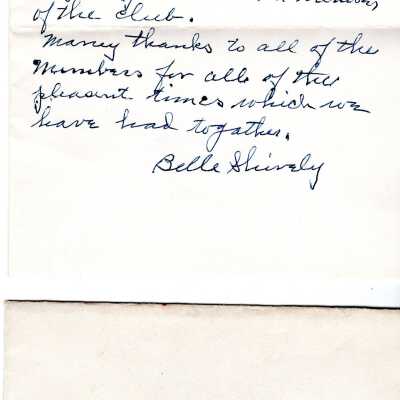 members
of the club.
Maney thanks to all of the
Mumbers for alle of the
pleasent times which we
have had togather.
Belle Shively